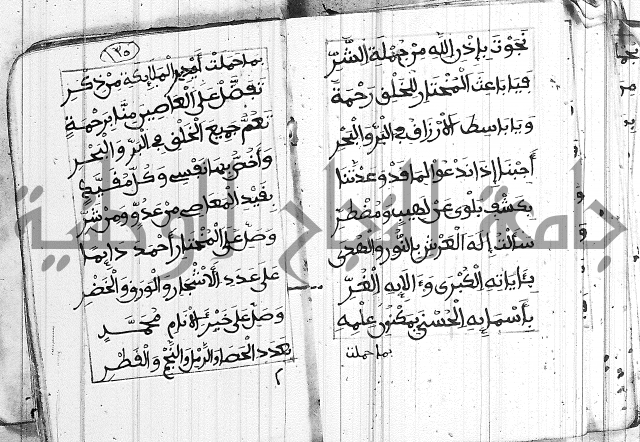 نجوت بإذن الله من جملة الشر
فيا باعث المختار للخلق رحمة
ويا باسط الارزاق في البر والبحر
أجبنا إذا ندعو لما قد وعدتنا
بكشف بلوى عن لهيب ومضطر
سألت إله العرش بالنور والهدى
بئاياته الكبرى وءالايه الغر
بأسمايه الحسنى بمكنون علمه
بما حملت
١٣٥
بما حملت أم الملايكة من ذكر
تفضل على العاصين منا برحمة
تعم جميع الخلق في البر والبحر
وأخص بها نفسي وكل
بقيد المعاصي من عدو ومن شر
وصل على المختار أحمد دايما
على عدد الأشجار والورق والخضر
وصل على خير الانام محمد
بعدد الحصا والرمل والنجم والقطر
٢
جامعة النجاح الوطنية